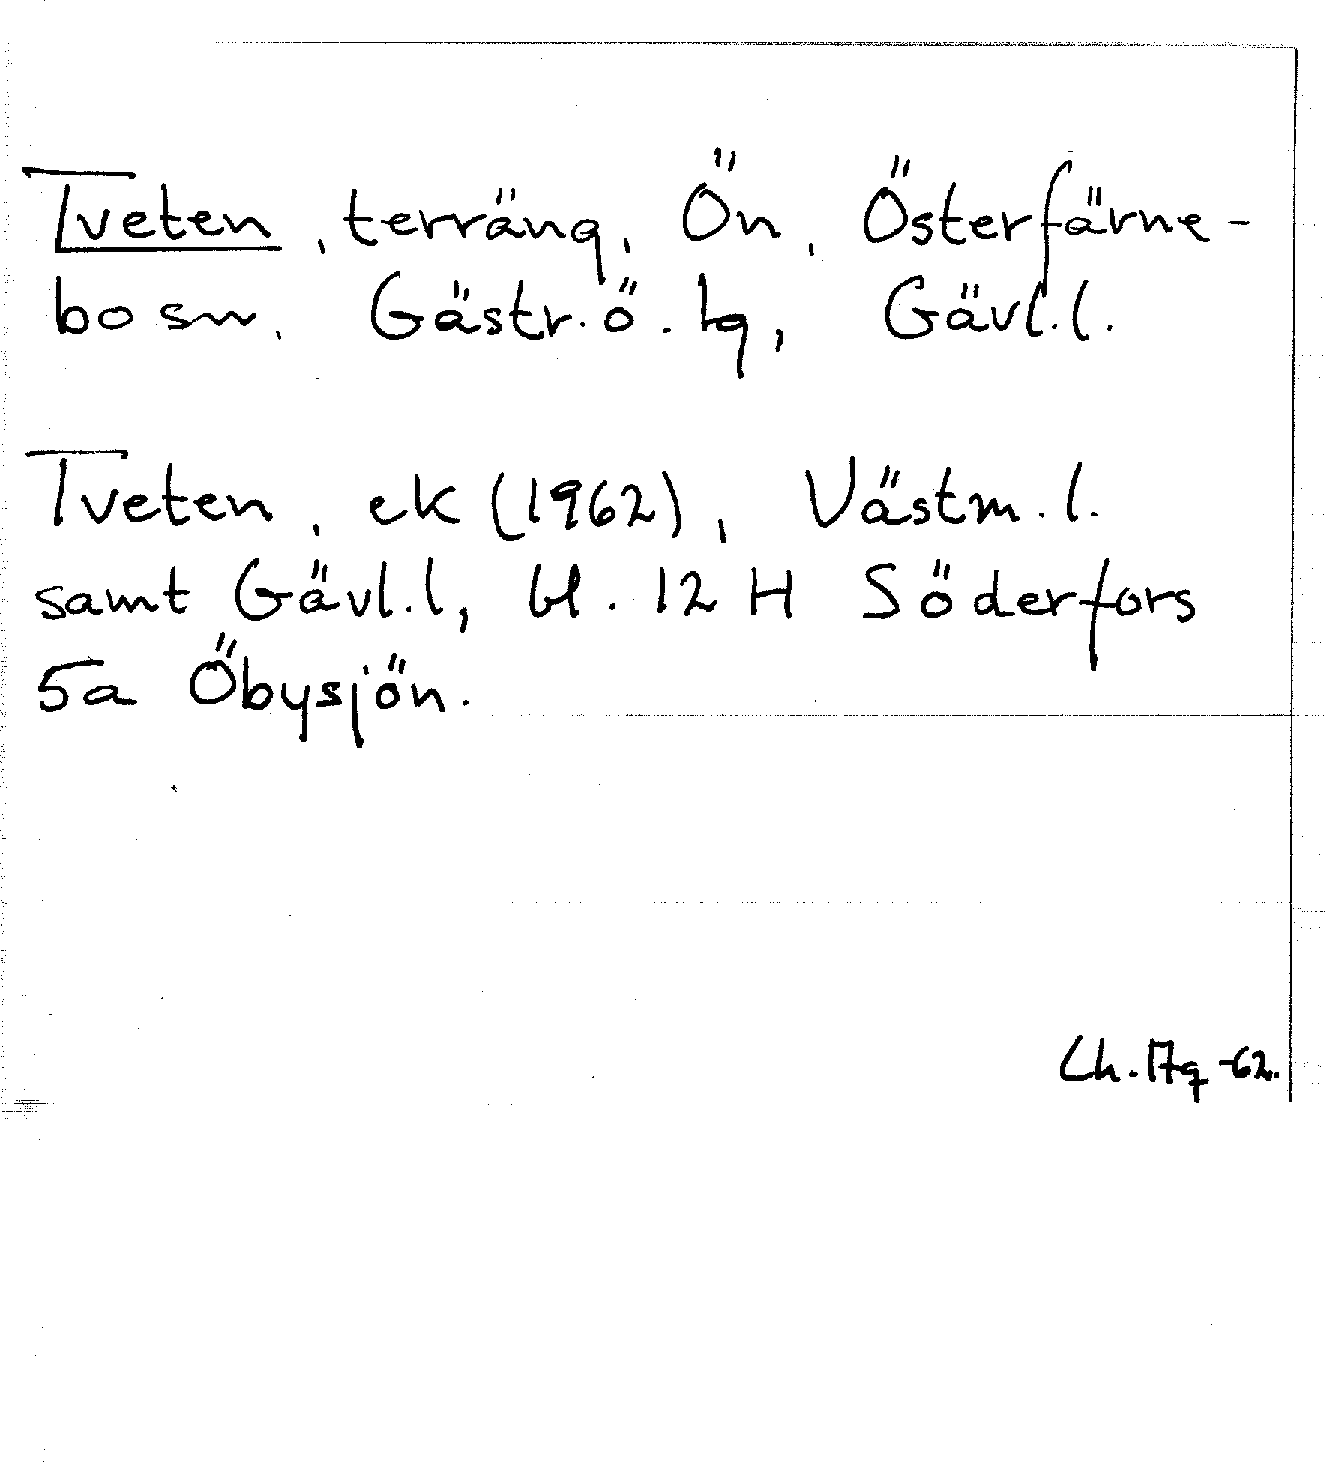 Tveten, terräng, Ön, Österfärne-
bo sn, Gästr. ö. tg, Gävl. l.
Tveten, ek (1962), Västm. l.
samt Gävl. l, bl. 12 H Söderfors
5a Öbysjön.
Ch. -62.